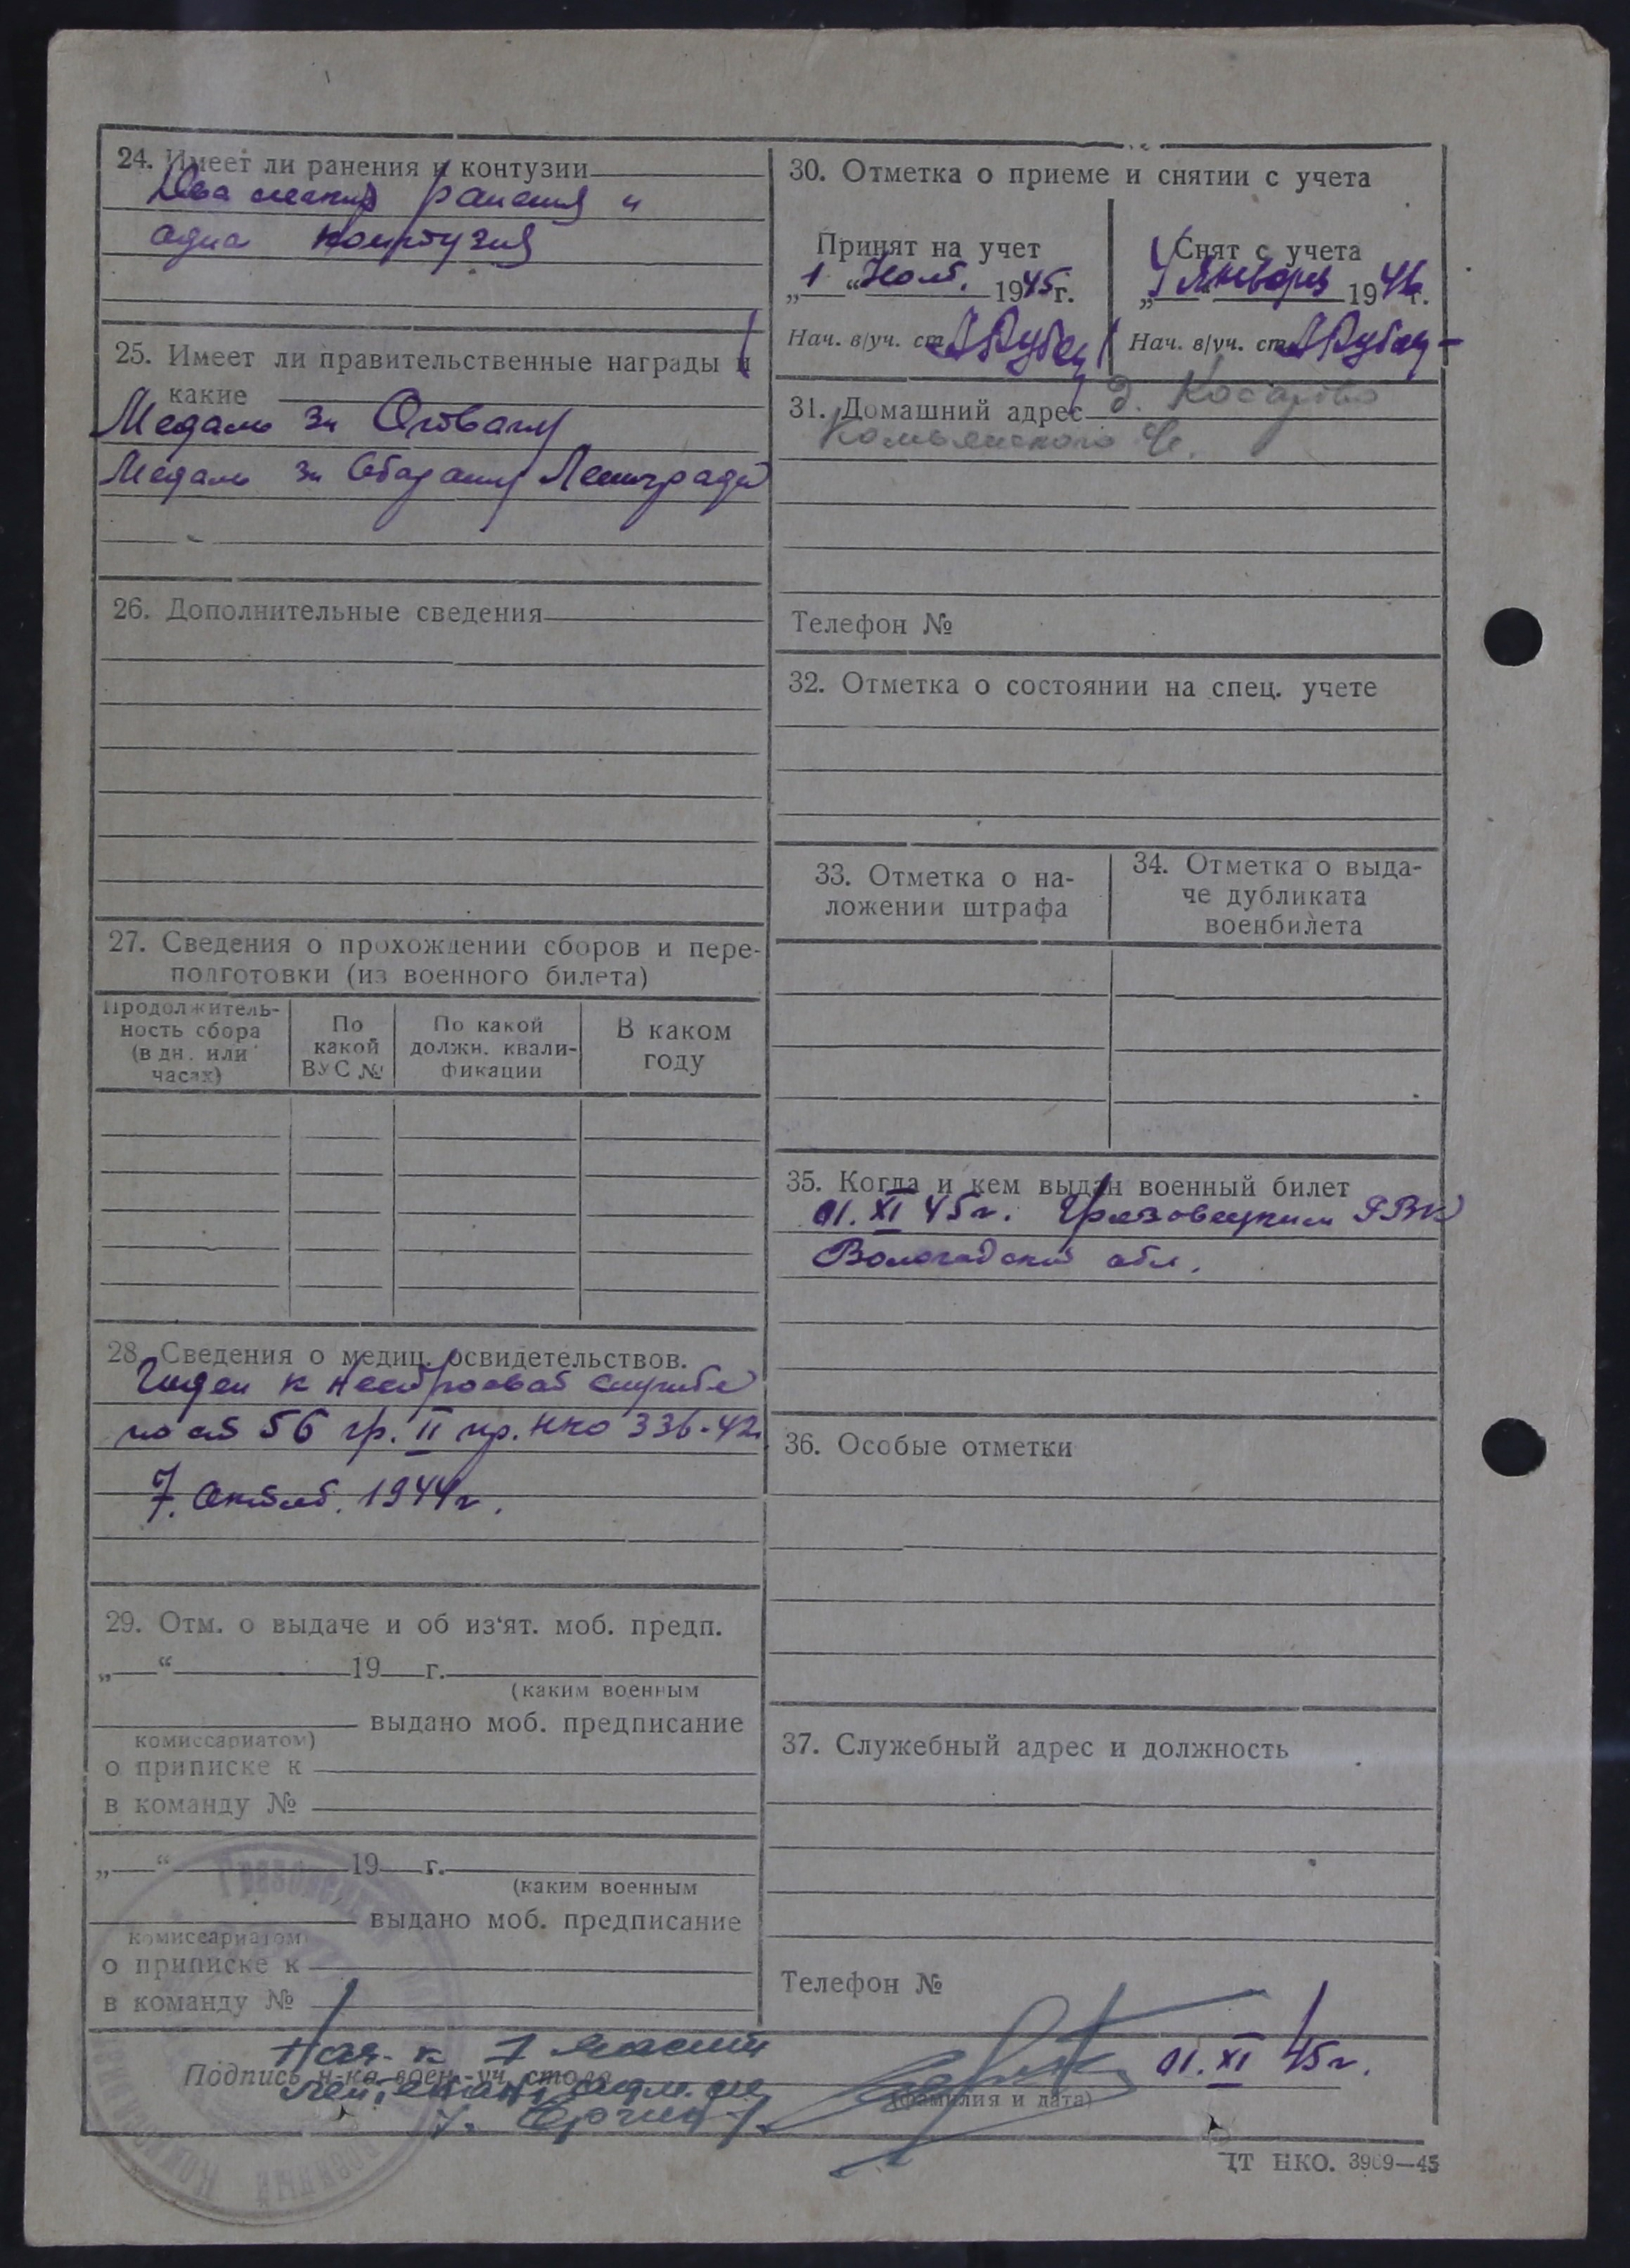 24. Имеет ли ранения и контузии
Два легких ранения и
одна контузия
25. Имеет ли правительственные награды и
какие
Медаль За Отвагу
Медаль за Оборону Ленинграда
26. Дополнительные сведения
27. Сведения о прохождении сборов и пере-
подготовки (из военного билета)
Продолжитель-
ность сбора
(в дн. или
часах)
По
какой
ВУС №
По какой
должн. квали-
фикации
В каком
году
28. Сведения о медиц. освидетельствов.
Годен к нестроевой службе
по ст 56 гр. II пр. НКО 336-42
7. Октяб. 1944 г.
29. Отм. о выдаче и об из‘ят. моб. предп.
„ “ 19 г.
(каким военным
выдано моб. предписание
комиссариатом)
о приписке к
в команду №
„ “ 19 г.
(каким военным
выдано моб. предписание
комиссариатом)
о приписке к
в команду №
30. Отметка о приеме и снятии с учета
Принят на учет
„1“ Нояб. 1945 г.
Нач. в/уч. ст
Снят с учета
Января 1946 г.
Нач. в/уч. ст
31. Домашний адрес д.
Телефон №
32. Отметка о состоянии на спец. учете
33. Отметка о на-
ложении штрафа
34. Отметка о выда-
че дубликата
военбилета
35. Когда и кем выдан военный билет
01. XI 45 г. Грязовецким РВК
Вологодской обл.
36. Особые отметки
37. Служебный адрес и должность
Телефон №
Нач. 1 части
Подпись н-ка воен.-уч. стола
01. XI 45 г.
(фамилия и дата)
ЦТ НКО. 3969—45